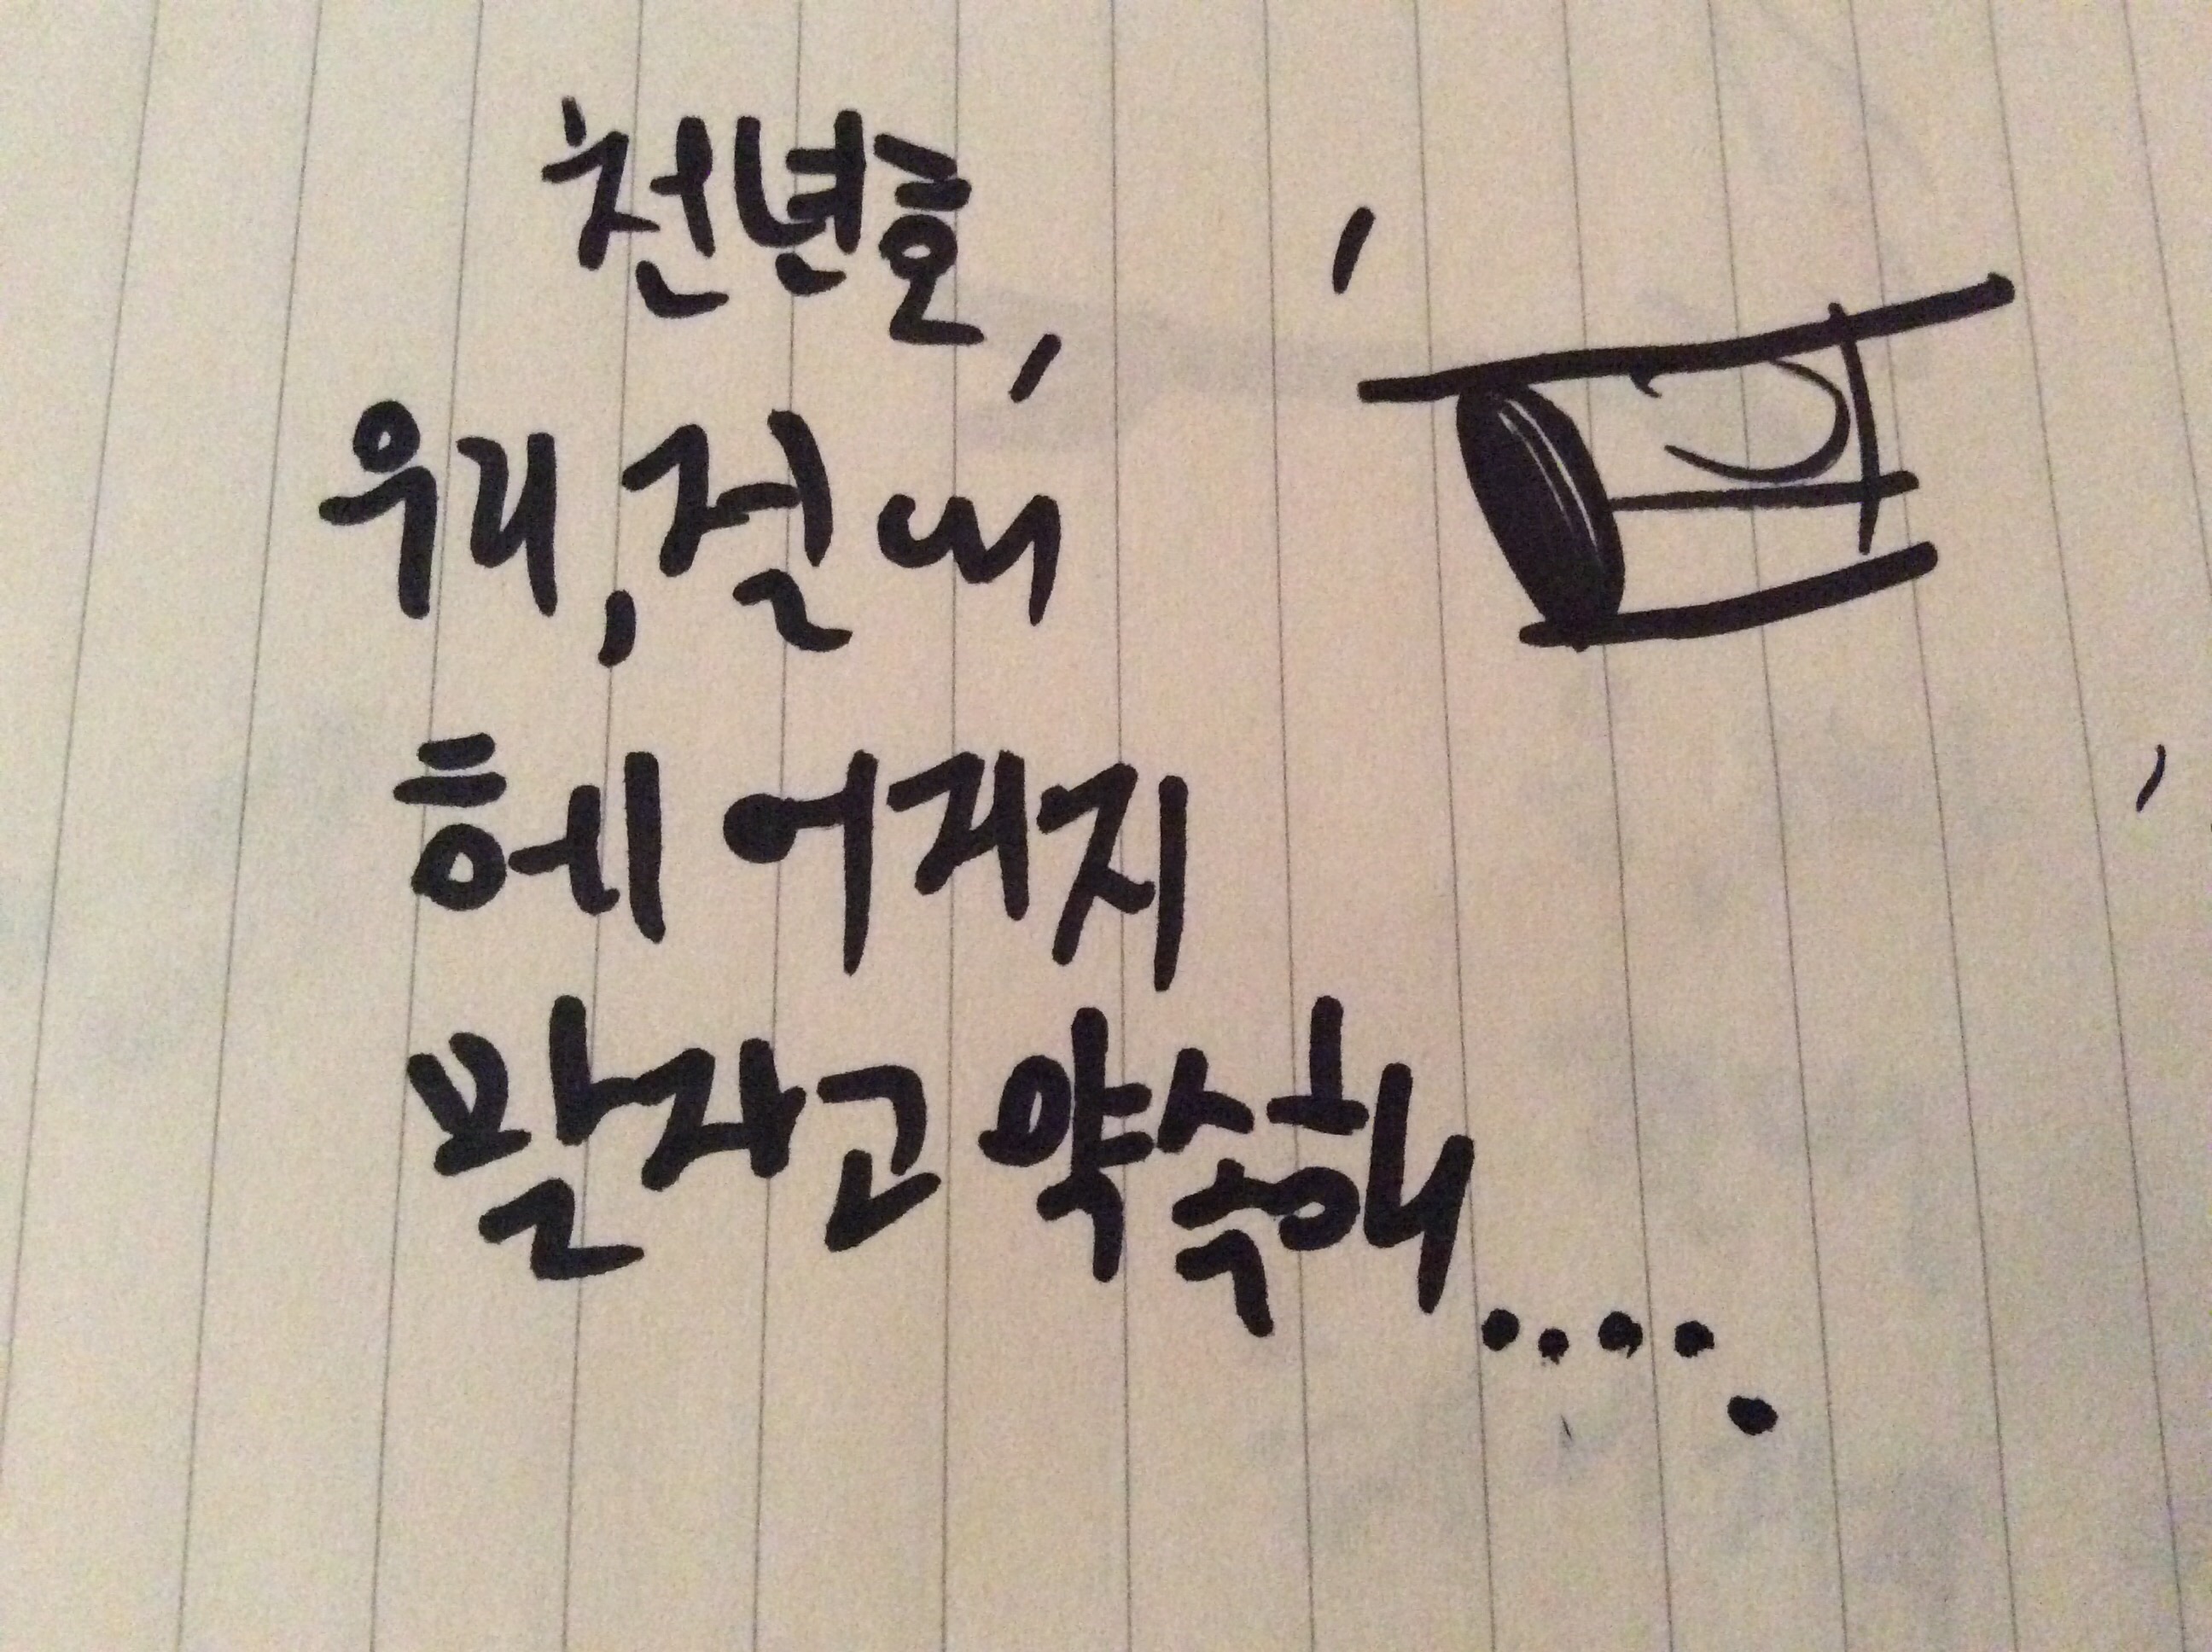 천년호,
우리, 절대
헤어지지
말자고 약속해.....